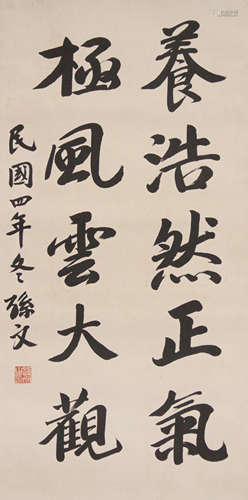 養浩然正氣
極風雲大觀
民國四年冬 孫文